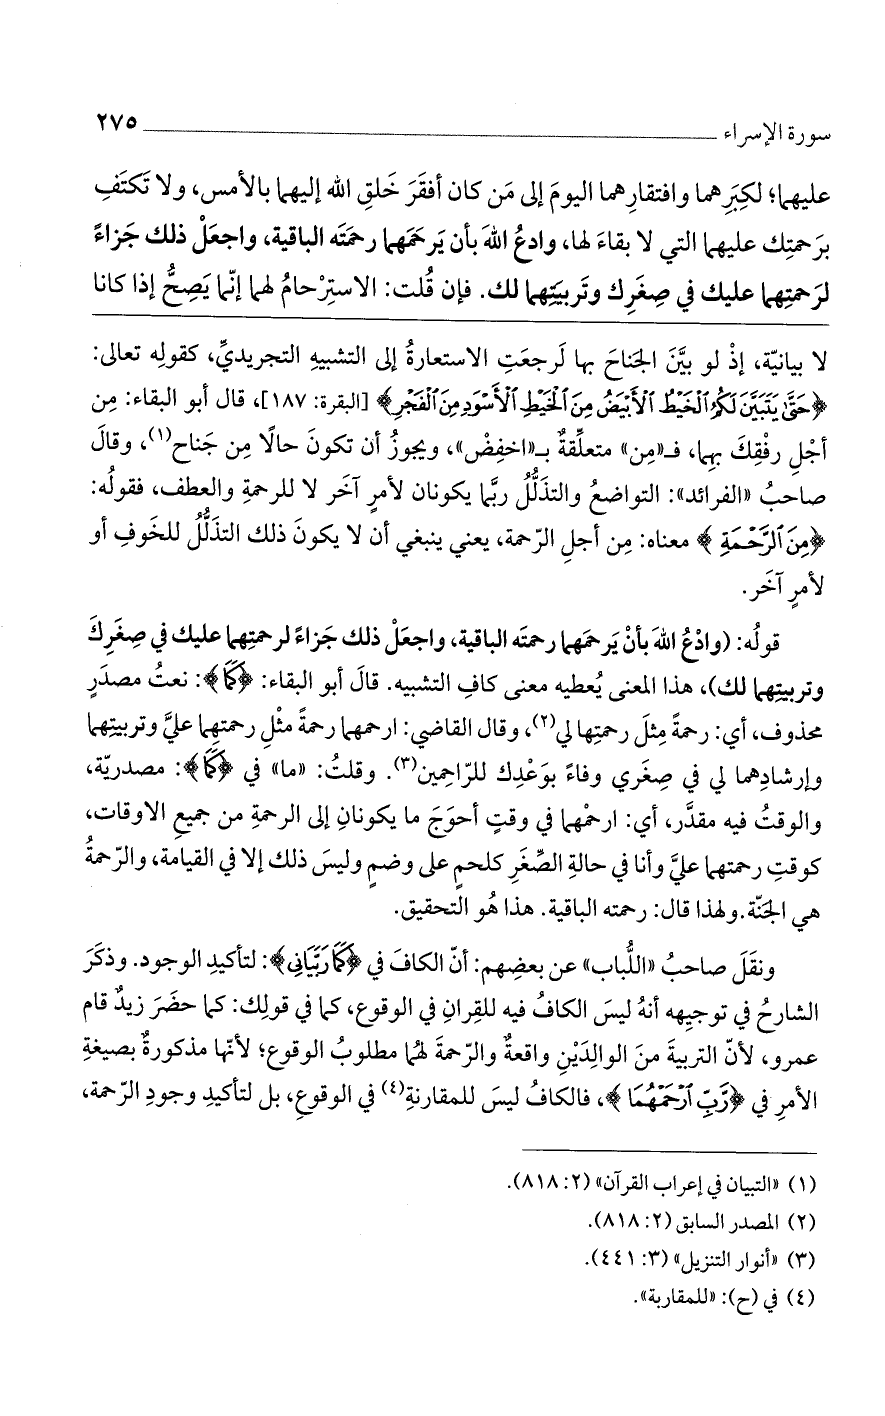 سورة الإسراء ٢٧٥
عليهما؛ لكِبَرِهما وافتقارِهما اليومَ إلى مَن كان أفقَرَ خَلقِ الله إليهما بالأمس، ولا تَكتَفِ
برَحمتِك عليهما التي لا بقاءَ لها، وادعُ اللهَ بأن يَرحَمَهما رحمتَه الباقية، واجعَلْ ذلك جَزاءً
لرَحمتِهما عليك في صِغَرِك وتَربيَتِهما لك. فإن قُلت: الاسترْحامُ لهما إنّما يَصِحُّ إذا كانا
لا بيانيّة، إذْ لو بيَّنَ الجَناحَ بها لَرجعَتِ الاستعارةُ إلى التشبيهِ التجريديِّ، كقولِه تعالى:
﴿حَتَّىٰ يَتَبَيَّنَ لَكُمُ ٱلْخَيْطُ ٱلْأَبْيَضُ مِنَ ٱلْخَيْطِ ٱلْأَسْوَدِ مِنَ ٱلْفَجْرِ﴾ [البقرة: ١٨٧]، قال أبو البقاء: مِن
أجْلِ رفْقِكَ بِهِما، فـ«مِن» متعلِّقةٌ بـ«اخفِضْ»، ويجوزُ أن تكونَ حالًا مِن جَناح(١)، وقالَ
صاحبُ «الفرائد»: التواضعُ والتذلُّلُ ربَّما يكونان لأمرٍ آخَر لا للرحمةِ والعطف، فقولُه:
﴿مِنَ ٱلرَّحْمَةِ﴾ معناه: مِن أجلِ الرّحمة، يعني ينبغي أن لا يكونَ ذلك التذلُّلُ للخَوفِ أو
لأمرٍ آخَر.
قولُه: (وادْعُ اللهَ بأنْ يَرحمَهما رحمتَه الباقية، واجعَلْ ذلك جَزاءً لرحمتِهما عليك في صِغَرِكَ
وتربيتِهما لك)، هذا المعنى يُعطيه معنى كافِ التشبيه. قالَ أبو البقاء: ﴿كَمَا﴾: نعتُ مصدَرٍ
محذوف، أي: رحمةً مِثلَ رحمتِها لي(٢)، وقال القاضي: ارحمهما رحمةً مثْلِ رحمتِهما عليَّ وتربيتِهما
وإرشادِهما لي في صِغَري وفاءً بوَعْدِك للرّاحِمين(٣). وقلتُ: «ما» في ﴿كَمَا﴾: مصدريّة،
والوقتُ فيه مقدَّر، أي: ارحمْهما في وقتٍ أحوَجَ ما يكونانِ إلى الرحمةِ من جميعِ الاوقات،
كوقتِ رحمتهما عليَّ وأنا في حالةِ الصِّغَرِ كلحمٍ على وضمٍ وليسَ ذلك إلا في القيامة، والرّحمةُ
هي الجَنّة.ولهذا قال: رحمته الباقية. هذا هُو التحقيق.
ونقَلَ صاحبُ «اللُّباب» عن بعضِهم: أنّ الكافَ في ﴿كَمَا رَبَّيَانِي﴾: لتأكيدِ الوجود. وذكَرَ
الشارحُ في توجيهِه أنهُ ليسَ الكافُ فيه للقِرانِ في الوقوع، كما في قولِك: كما حضَرَ زيدٌ قام
عمرو، لأنّ التربيةَ منَ الوالِدَيْنِ واقعةٌ والرّحمةَ لهُما مطلوبُ الوقوع؛ لأنّها مذكورةٌ بصيغةِ
الأمرِ في ﴿رَّبِّ ٱرْحَمْهُمَا﴾، فالكافُ ليسَ للمقارنةِ(٤) في الوقوعِ، بل لتأكيدِ وجودِ الرّحمة،
(١) «التبيان في إعراب القرآن» (٢: ٨١٨).
(٢) المصدر السابق (٢: ٨١٨).
(٣) «أنوار التنزيل» (٣: ٤٤١).
(٤) في (ح): «للمقاربة».